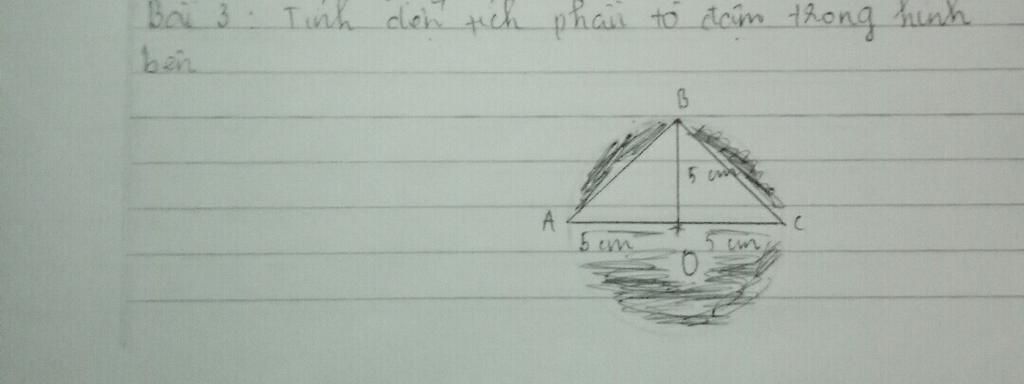 Bài 3 : Tính diện tích phần tô đậm trong hình
bên
B
5 cm
A
C
5 cm 5 cm
O